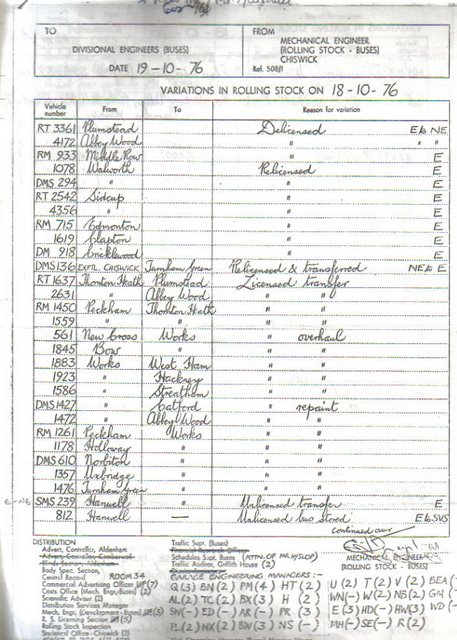 TO
DIVISIONAL ENGINEERS (BUSES)
DATE 19-10-76
FROM
MECHANICAL ENGINEER
(ROLLING STOCK - BUSES)
CHISWICK
Ref. 508/1
VARIATIONS IN ROLLING STOCK ON 18-10-76
Vehicle number From To Reason for variation
RT 3361 Plumstead Delicensed E & NE
4172 Abbey Wood " " "
RM 933 Middle Row " E
1078 Walworth Relicensed E
DMS 294 " " E
RT 2542 Sidcup " E
4356 " " E
RM 715 Edmonton " E
1619 Clapton " E
DM 918 Cricklewood " E
DMS 136 EXPTL. CHISWICK Turnham Green Relicensed & transferred NE & E
RT 1637 Thornton Heath Plumstead Licensed transfer
2631 " Abbey Wood " "
RM 1450 Peckham Thornton Heath " "
1559 " " " "
561 New Cross Works " overhaul
1845 Bow " " "
1883 Works West Ham " "
1923 " Hackney " "
1586 " Streatham " "
DMS 1427 " Catford " repaint
1472 " Abbey Wood " "
RM 1261 Peckham Works " "
1178 Holloway " " "
DMS 610 Norbiton " " "
1357 Uxbridge " " "
1476 Turnham Green " " "
E-NE SMS 239 Hanwell Unlicensed transfer E
812 Hanwell — Unlicensed bus stored E & SUS
continued over
DISTRIBUTION
Advert. Controller, Aldenham
Advert. Controller, Camberwell
Body Spec. Section,
Central Record ROOM 34
Commercial Advertising Officer (7)
Costs Office (Mech. Engr. Buses) (2)
Scientific Adviser (2)
Distribution Services Manager
Mech. Engr. (Development-Buses) (3)
R. S. Licensing Section (5)
Rolling Stock Inspection
Statistical Office - Chiswick (2)
Traffic Supt. (Buses)
Financial Research Officer
Schedules Supt. Buses (ATTN. OF MR HYSLOP)
Traffic Auditor, Griffith House (2)
GARAGE ENGINEERING MANAGERS:-
MECHANICAL ENGINEER
(ROLLING STOCK - BUSES)
Q (3) BN (2) PM (4) HT (2) U (2) T (2) V (2) BEA (-)
AL (2) TC (2) BK (3) H (2) WN (-) W (2) NB (2) GH (-)
SW (-) ED (-) AR (-) PR (3) E (3) HD (-) HW (3) WD (-)
PL (2) NX (2) BW (3) NS (-) MH (-) SE (-) R (2)